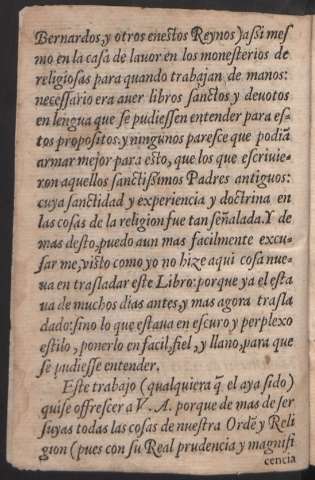 Bernardos, y otros enestos Reynos) assi mes
mo en la casa de lauor en los monesterios de
religiosas para quando trabajan de manos:
necessario era auer libros sanctos y deuotos
en lengua que se pudiessen entender para es-
tos propositos: y ningunos paresce que podiā
armar mejor para esto, que los que escriuie-
ron aquellos sanctissimos Padres antiguos:
cuya sanctidad y experiencia y doctrina en
las cosas de la religion fue tan señalada. Y de
mas desto, puedo aun mas facilmente excu-
sar me, visto como yo no hize aqui cosa nue-
ua en trasladar este Libro: porque ya el esta
ua de muchos dias antes, y mas agora trasla
dado: sino lo que estaua en escuro y perplexo
estilo, ponerlo en facil, fiel, y llano, para que
se pudiesse entender.
Este trabajo (qualquiera q̄ el aya sido)
quise offrescer a V. A. porque de mas de ser
suyas todas las cosas de nuestra Ordē y Reli
gion (pues con su Real prudencia y magnifi
cencia